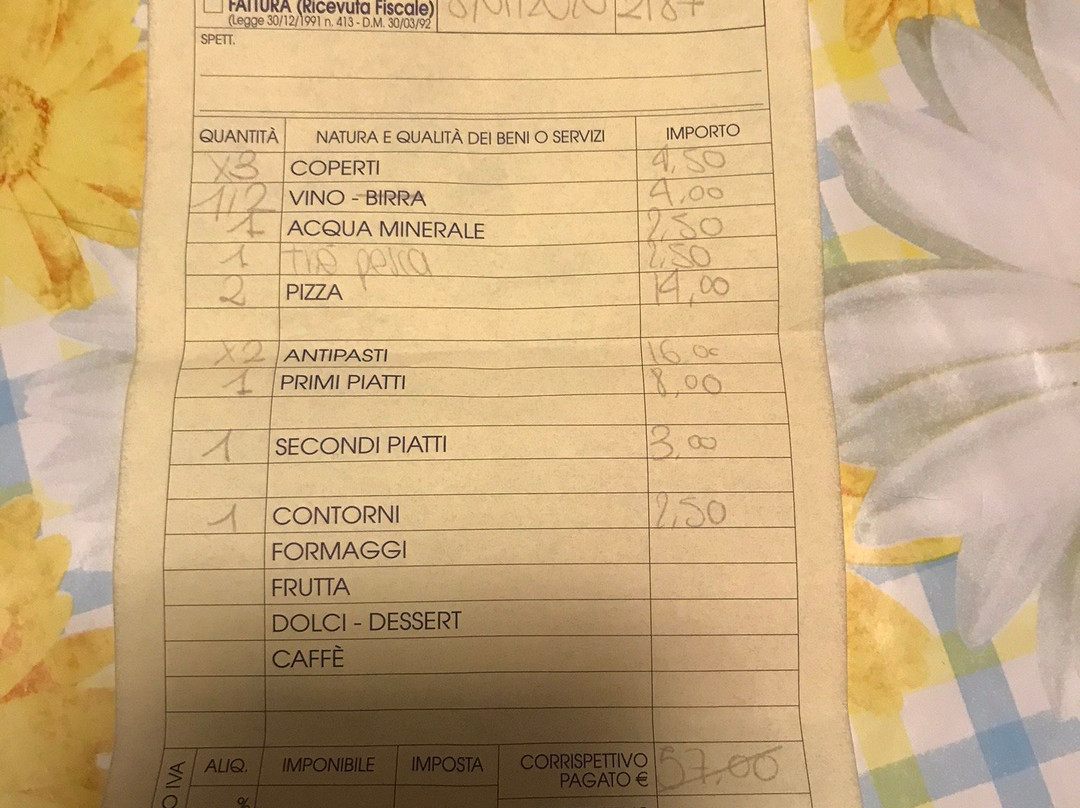 FATTURA (Ricevuta Fiscale)
(Legge 30/12/1991 n. 413 - D.M. 30/03/92
2187
SPETT.
QUANTITÀ NATURA E QUALITÀ DEI BENI O SERVIZI IMPORTO
X3 COPERTI 4,50
1/2 VINO - BIRRA 4,00
1 ACQUA MINERALE 2,50
1 thè pesca 2,50
2 PIZZA 14,00
X2 ANTIPASTI 16,00
1 PRIMI PIATTI 8,00
1 SECONDI PIATTI 3,00
1 CONTORNI 2,50
FORMAGGI
FRUTTA
DOLCI - DESSERT
CAFFÈ
O IVA ALIQ. IMPONIBILE IMPOSTA CORRISPETTIVO
PAGATO € 57,00
%